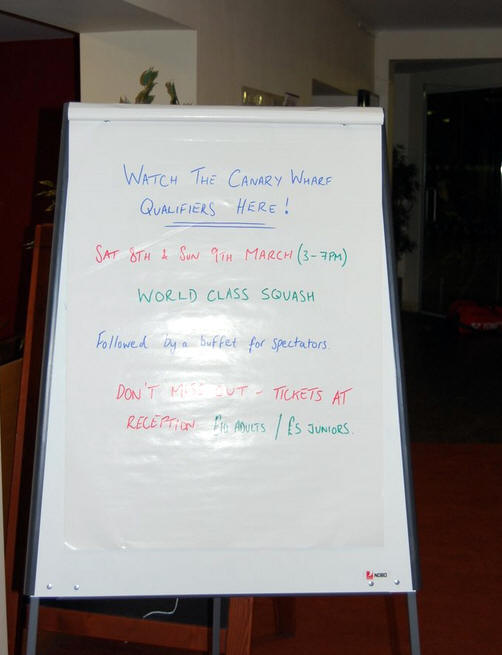 WATCH THE CANARY WHARF
QUALIFIERS HERE!
SAT 8TH & SUN 9TH MARCH (3-7PM)
WORLD CLASS SQUASH
Followed by a buffet for spectators.
DON'T MISS OUT - TICKETS AT
RECEPTION £10 ADULTS / £5 JUNIORS.
NOBO